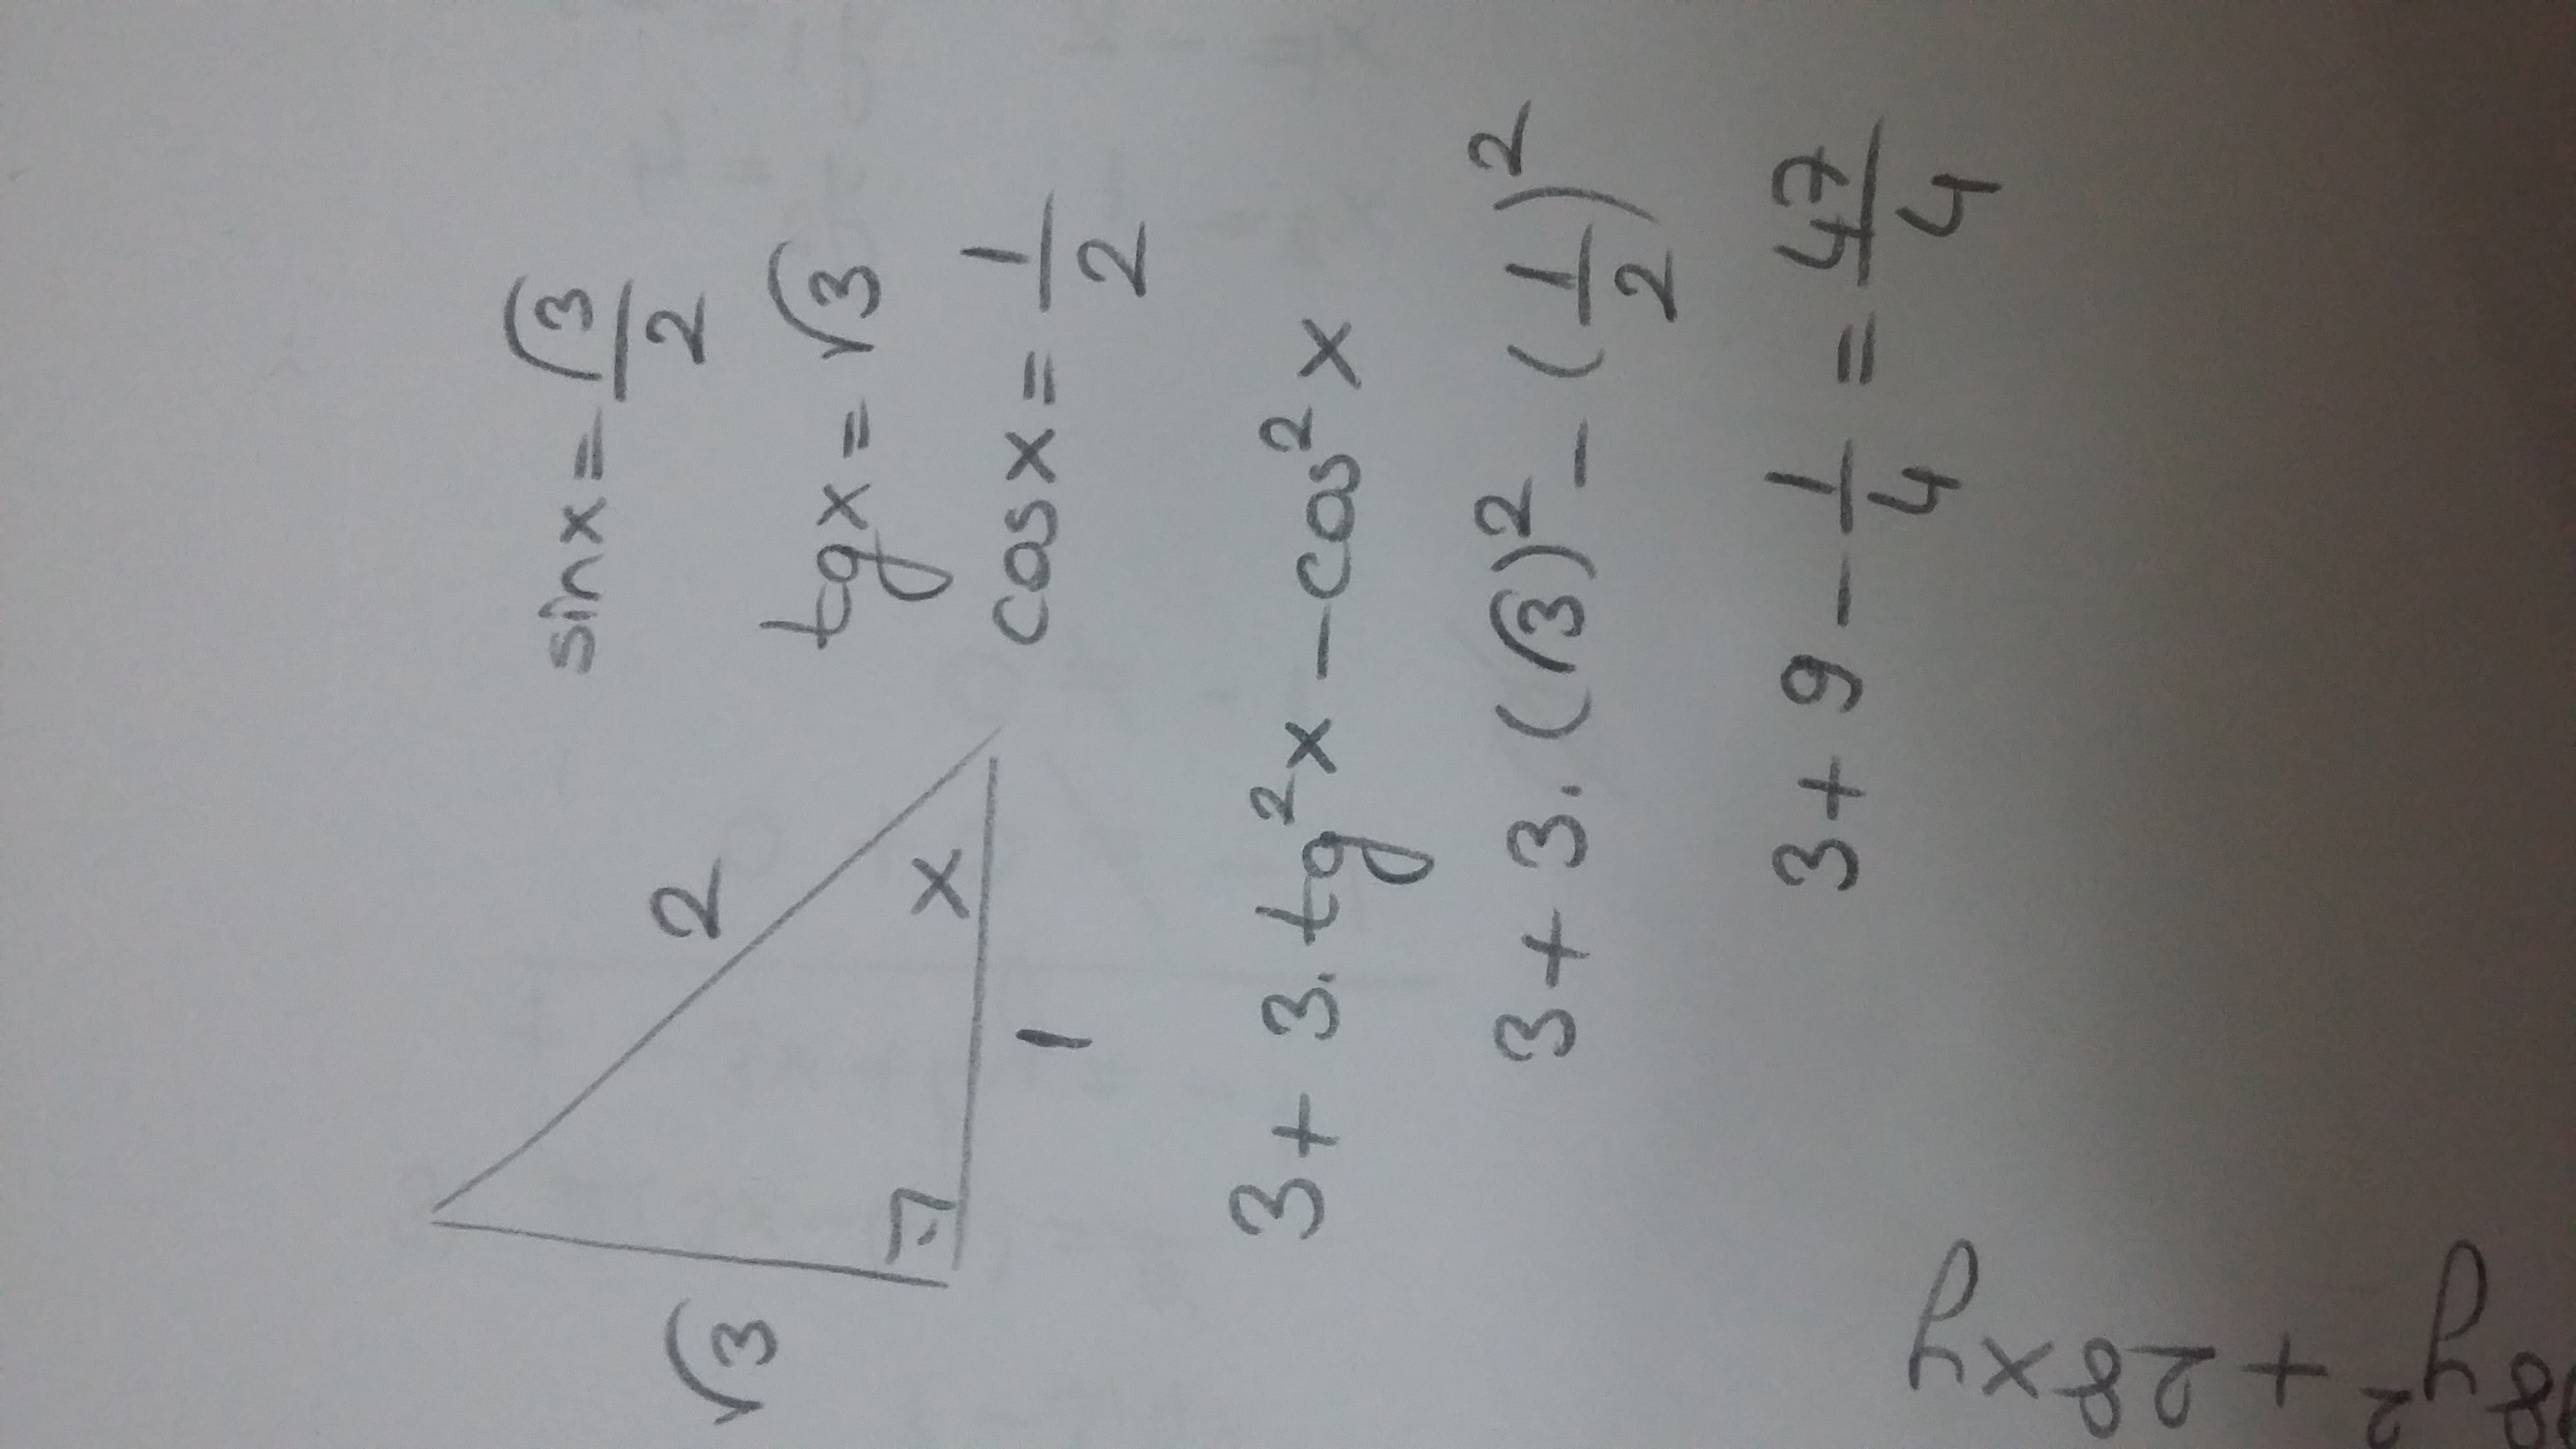 sinx = √3/2
tgx = √3
cosx = 1/2
2
√3
x
1
3 + 3. tg²x - cos²x
3 + 3. (√3)² - (1/2)²
3 + 9 - 1/4 = 47/4
8y² + 28xy